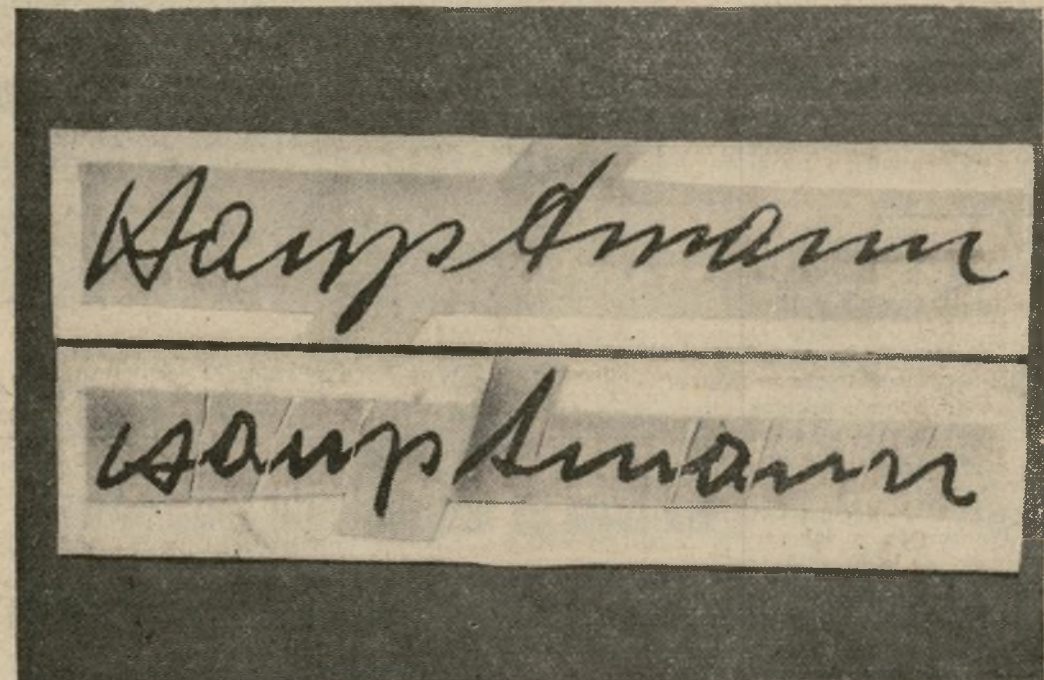 Hauptmann
Hauptmann